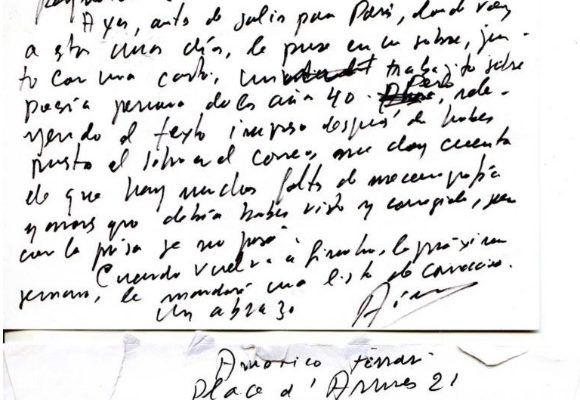 Ayer, antes de salir para París, donde voy
a estar unos días, le puse en un sobre, jun-
to con una carta, un trabajito sobre
poesía peruana de los años 40. Pero, rele-
yendo el texto impreso después de haber
puesto el sobre en el correo, me doy cuenta
de que hay muchas faltas de mecanografía
y errores que debía haber visto y corregido, pero
con la prisa se me pasó.
Cuando vuelva a Ginebra, la próxima
semana, le mandaré una lista de correcciones.
Un abrazo.
Américo Ferrari
Place d'Armes 21